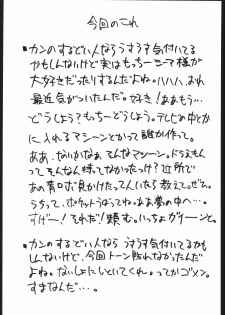 今回のこれ
・カンのするどい人ならうすうす気付いてる
かもしんないけど実はもっちーシマ様が
大好きだったりするんだよね。ハハハ、おれ
最近気がついたんだ。好き!ああもう…
どうしよう?もっちーどうしよう。テレビの中とか
に入れるマシーンとかって誰か作って。
ああ、ないかなぁそんなマシーン。ドラえもん
ってそんなん持ってなかったっけ?近所で
あの青ロボ見かけたってんいたら教えてぜよ。
うちって、ポケットうばうってね。ああ夢の中へ…。
すげー!それだ!頼む。いっちょがーんと。
・カンのするどい人ならうすうす気付いてるかも
しんないけど、今回トーン貼れなかったんだ
よね。ないしょにしといてくれ。ってかゴメン。
すまなんだ…。